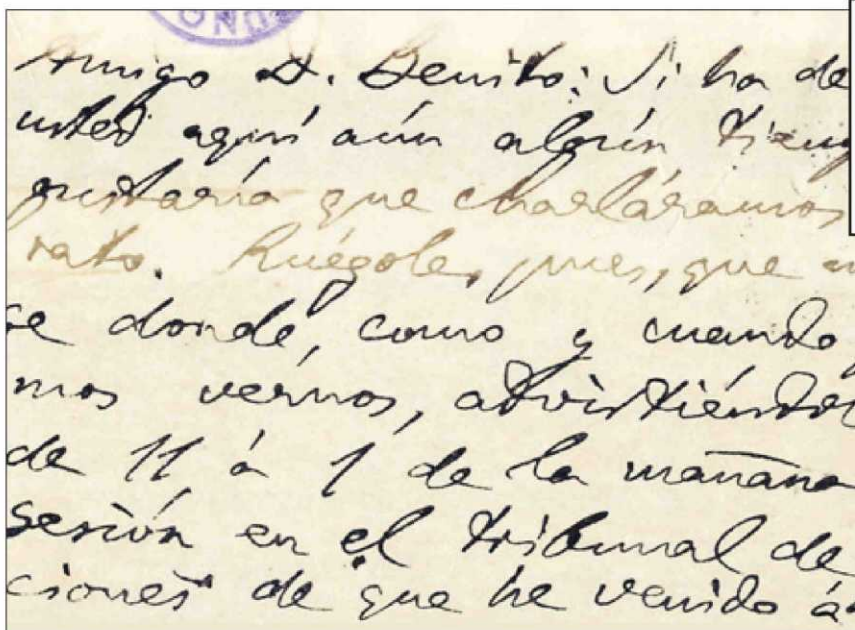 UNO
Amigo D. Benito: Si ha de
usted aquí aún algún tiemp
gustaría que charláramos
rato. Ruégole, pues, que
se donde, como y cuando
mos vernos, advirtiéndol
de 11 á 1 de la mañana
sesión en el tribunal de
ciones de que he venido á